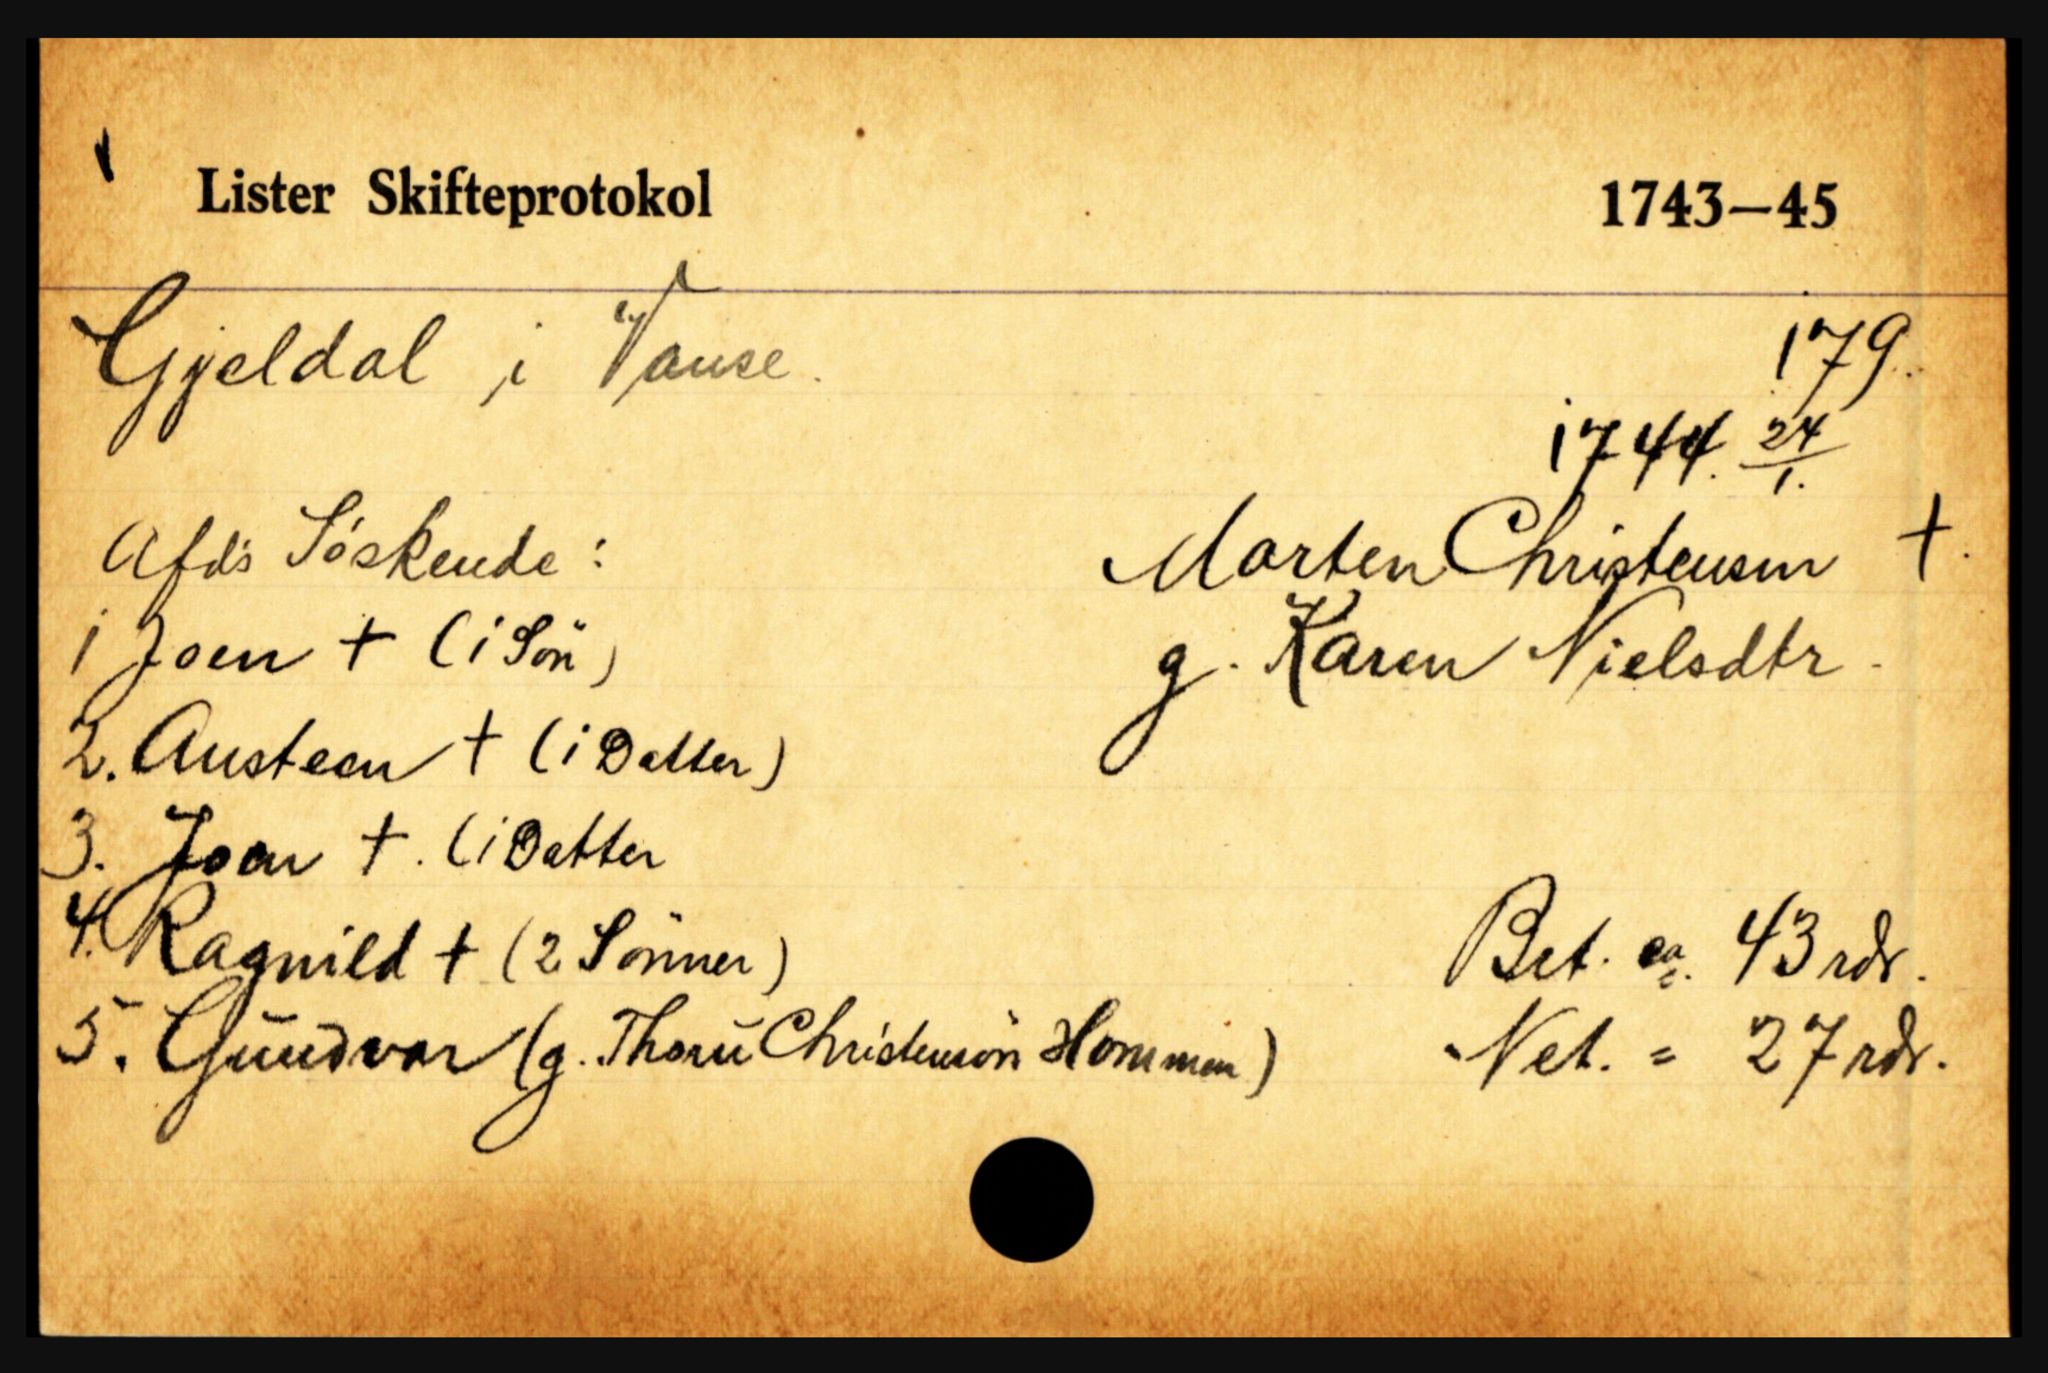 Lister Skifteprotokol 1743—45
Gjeldal i Vanse.
179.
1744. 24/1.
Afd's Söskende:
Morten Christensen †.
g. Karen Nielsdtr.
1 Joen † (1 Sön)
2. Austeen † (1 Datter)
3. Joen †. (1 Datter
4. Ragnild † (2 Sönner)
5. Gŭndvor (g. Thorŭ Christensön Hommen)
Bet. ca. 43 rdr.
Net. = 27 rdr.